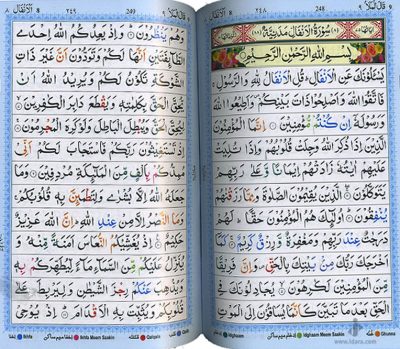 قَالَ الْمَلَاُ ٩ ٢٤٨ 248 اَلْاَنْفَال ٨
سُوْرَةُ الْاَنْفَالِ مَدَنِيَّةٌ
بِسْمِ اللّٰهِ الرَّحْمٰنِ الرَّحِيْمِ
يَسْـَٔلُوْنَكَ عَنِ الْاَنْفَالِ ؕ قُلِ الْاَنْفَالُ لِلّٰهِ وَالرَّسُوْلِ ۚ
فَاتَّقُوا اللّٰهَ وَاَصْلِحُوْا ذَاتَ بَيْنِكُمْ ۪ وَاَطِيْعُوا اللّٰهَ
وَرَسُوْلَهٗۤ اِنْ كُنْتُمْ مُّؤْمِنِيْنَ ۝ اِنَّمَا الْمُؤْمِنُوْنَ
الَّذِيْنَ اِذَا ذُكِرَ اللّٰهُ وَجِلَتْ قُلُوْبُهُمْ وَاِذَا تُلِيَتْ
عَلَيْهِمْ اٰيٰتُهٗ زَادَتْهُمْ اِيْمَانًا وَّعَلٰى رَبِّهِمْ
يَتَوَكَّلُوْنَ ۝ الَّذِيْنَ يُقِيْمُوْنَ الصَّلٰوةَ وَمِمَّا رَزَقْنٰهُمْ
يُنْفِقُوْنَ ۝ اُولٰٓئِكَ هُمُ الْمُؤْمِنُوْنَ حَقًّا ؕ لَهُمْ
دَرَجٰتٌ عِنْدَ رَبِّهِمْ وَمَغْفِرَةٌ وَّرِزْقٌ كَرِيْمٌ ۝ كَمَاۤ
اَخْرَجَكَ رَبُّكَ مِنْۢ بَيْتِكَ بِالْحَقِّ ۪ وَاِنَّ فَرِيْقًا
الْحَقِّ بَعْدَ مَا تَبَيَّنَ كَاَنَّمَا يُسَاقُوْنَ اِلَى الْمَوْتِ
Idghaam Idghaam Meem Saakin Ghunna
قَالَ الْمَلَاُ ٩ 249 ٢٤٩ اَلْاَنْفَال ٨
وَهُمْ يَنْظُرُوْنَ ۝ وَاِذْ يَعِدُكُمُ اللّٰهُ اِحْدَى
الطَّآئِفَتَيْنِ اَنَّهَا لَكُمْ وَتَوَدُّوْنَ اَنَّ غَيْرَ ذَاتِ
الشَّوْكَةِ تَكُوْنُ لَكُمْ وَيُرِيْدُ اللّٰهُ اَنْ
يُّحِقَّ الْحَقَّ بِكَلِمٰتِهٖ وَيَقْطَعَ دَابِرَ الْكٰفِرِيْنَ ۝
لِيُحِقَّ الْحَقَّ وَيُبْطِلَ الْبَاطِلَ وَلَوْ كَرِهَ الْمُجْرِمُوْنَ ۝
اِذْ تَسْتَغِيْثُوْنَ رَبَّكُمْ فَاسْتَجَابَ لَكُمْ اَنِّيْ
مُمِدُّكُمْ بِاَلْفٍ مِّنَ الْمَلٰٓئِكَةِ مُرْدِفِيْنَ ۝ وَمَا
جَعَلَهُ اللّٰهُ اِلَّا بُشْرٰى وَلِتَطْمَئِنَّ بِهٖ قُلُوْبُكُمْ ۚ
وَمَا النَّصْرُ اِلَّا مِنْ عِنْدِ اللّٰهِ ؕ اِنَّ اللّٰهَ عَزِيْزٌ
حَكِيْمٌ ۝ اِذْ يُغَشِّيْكُمُ النُّعَاسَ اَمَنَةً مِّنْهُ وَ
يُنَزِّلُ عَلَيْكُمْ مِّنَ السَّمَآءِ مَآءً لِّيُطَهِّرَكُمْ بِهٖ
وَيُذْهِبَ عَنْكُمْ رِجْزَ الشَّيْطٰنِ وَلِيَرْبِطَ عَلٰى
قُلُوْبِكُمْ وَيُثَبِّتَ بِهِ الْاَقْدَامَ ۝ اِذْ يُوْحِيْ
Ikhfa Ikhfa Meem Saakin Qalqala Qalb
www.idara.com